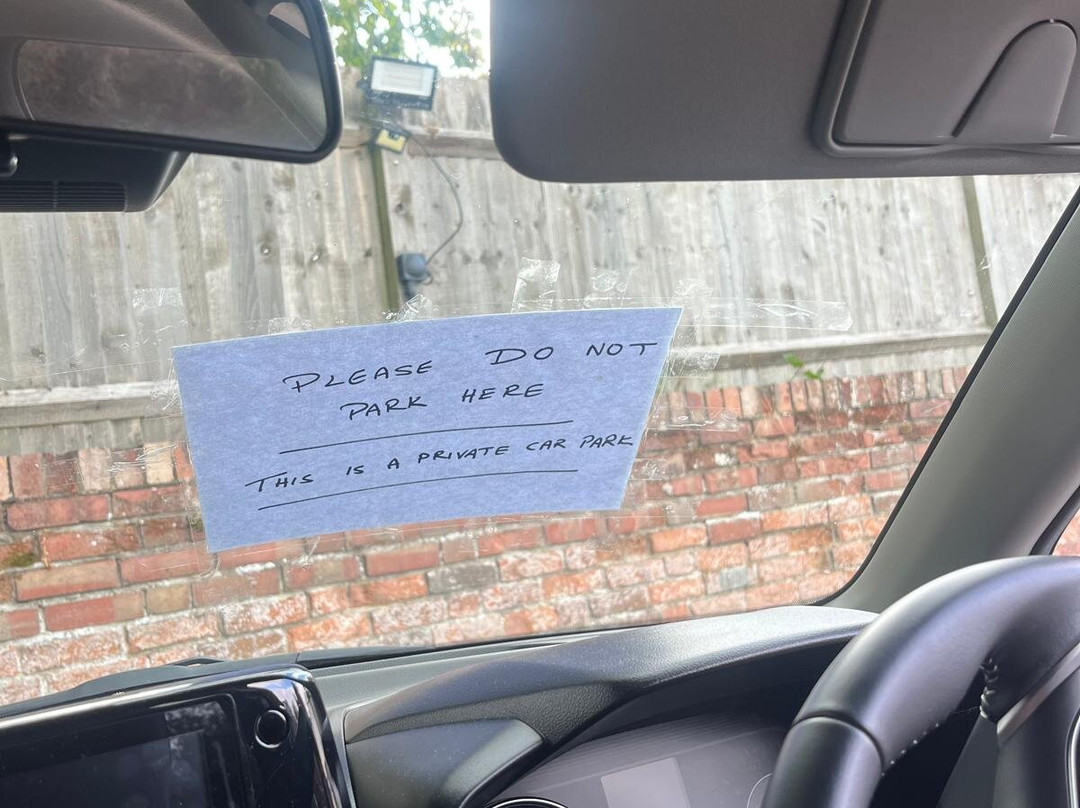 PLEASE DO NOT
PARK HERE
THIS IS A PRIVATE CAR PARK